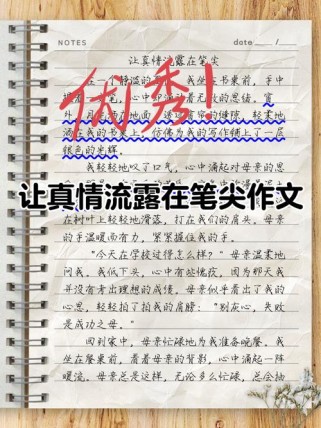 NOTES
date
让真情流露在笔尖
在一个静谧的
我坐在书桌前，手中
心中
着无
的思绪。窗
洒在我的书桌上，仿佛为我的写作铺上了一层
银色的光辉。
优秀！
我轻轻地叹了口气，心中涌起对母亲的思
让真情流露在笔尖作文
在树叶上轻轻地滑落，打在我们的肩头。母亲
的手温暖而有力，紧紧握住我的手。
“今天在学校过得怎么样？”母亲温柔地
问我。我低下头，心中有些愧疚，因为那天我
并没有考出理想的成绩。母亲似乎看出了我的
心思，轻轻拍了拍我的肩膀：“别灰心，失败
是成功之母。”
回到家中，母亲忙碌地为我准备晚餐。我
坐在餐桌前，看着母亲的背影，心中涌起一阵
暖流。母亲总是这样，无论多么忙碌，总会抽